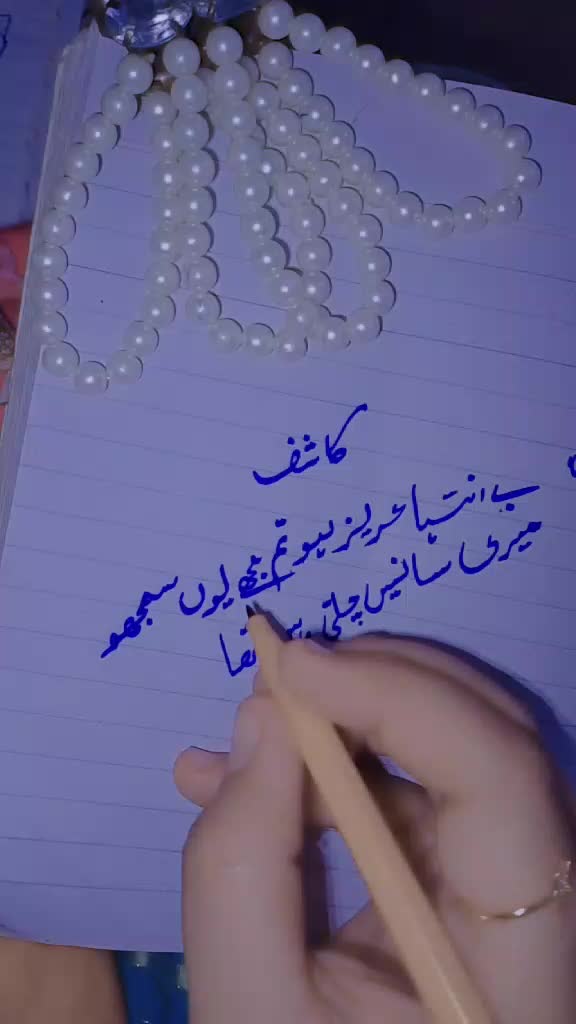 کاشف
بے انتہا عزیز ہو تم مجھے یوں سمجھو
میری سانسیں چلتی ہیں